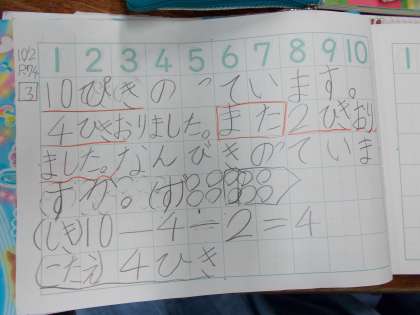 1 2 3 4 5 6 7 8 9 10
10/2
P.74
3
10ぴきのっています。
4ひきおりました。また2ひきおり
ました。なんびきのっていま
すか。(ず)
(しき)10-4-2=4
(こたえ)4ひき
1